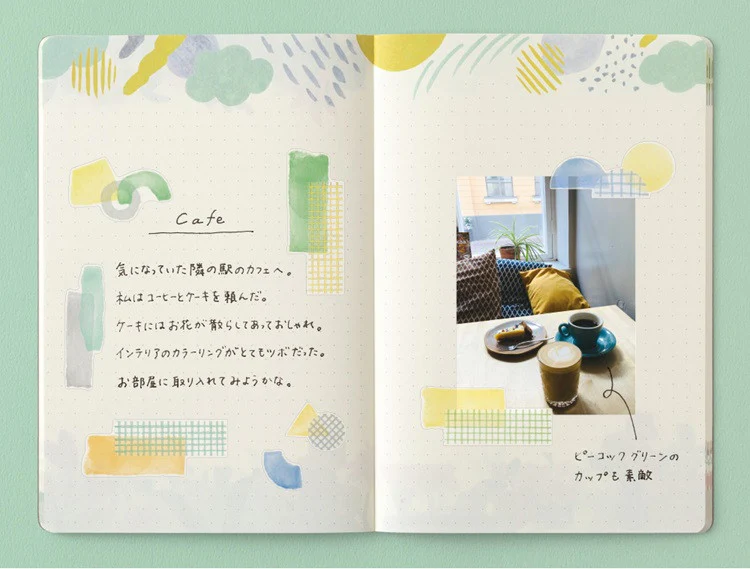 Cafe
気になっていた隣の駅のカフェへ。
私はコーヒーとケーキを頼んだ。
ケーキにはお花が散らしてあっておしゃれ。
インテリアのカラーリングがとてもツボだった。
お部屋に取り入れてみようかな。
ピーコックグリーンの
カップも素敵